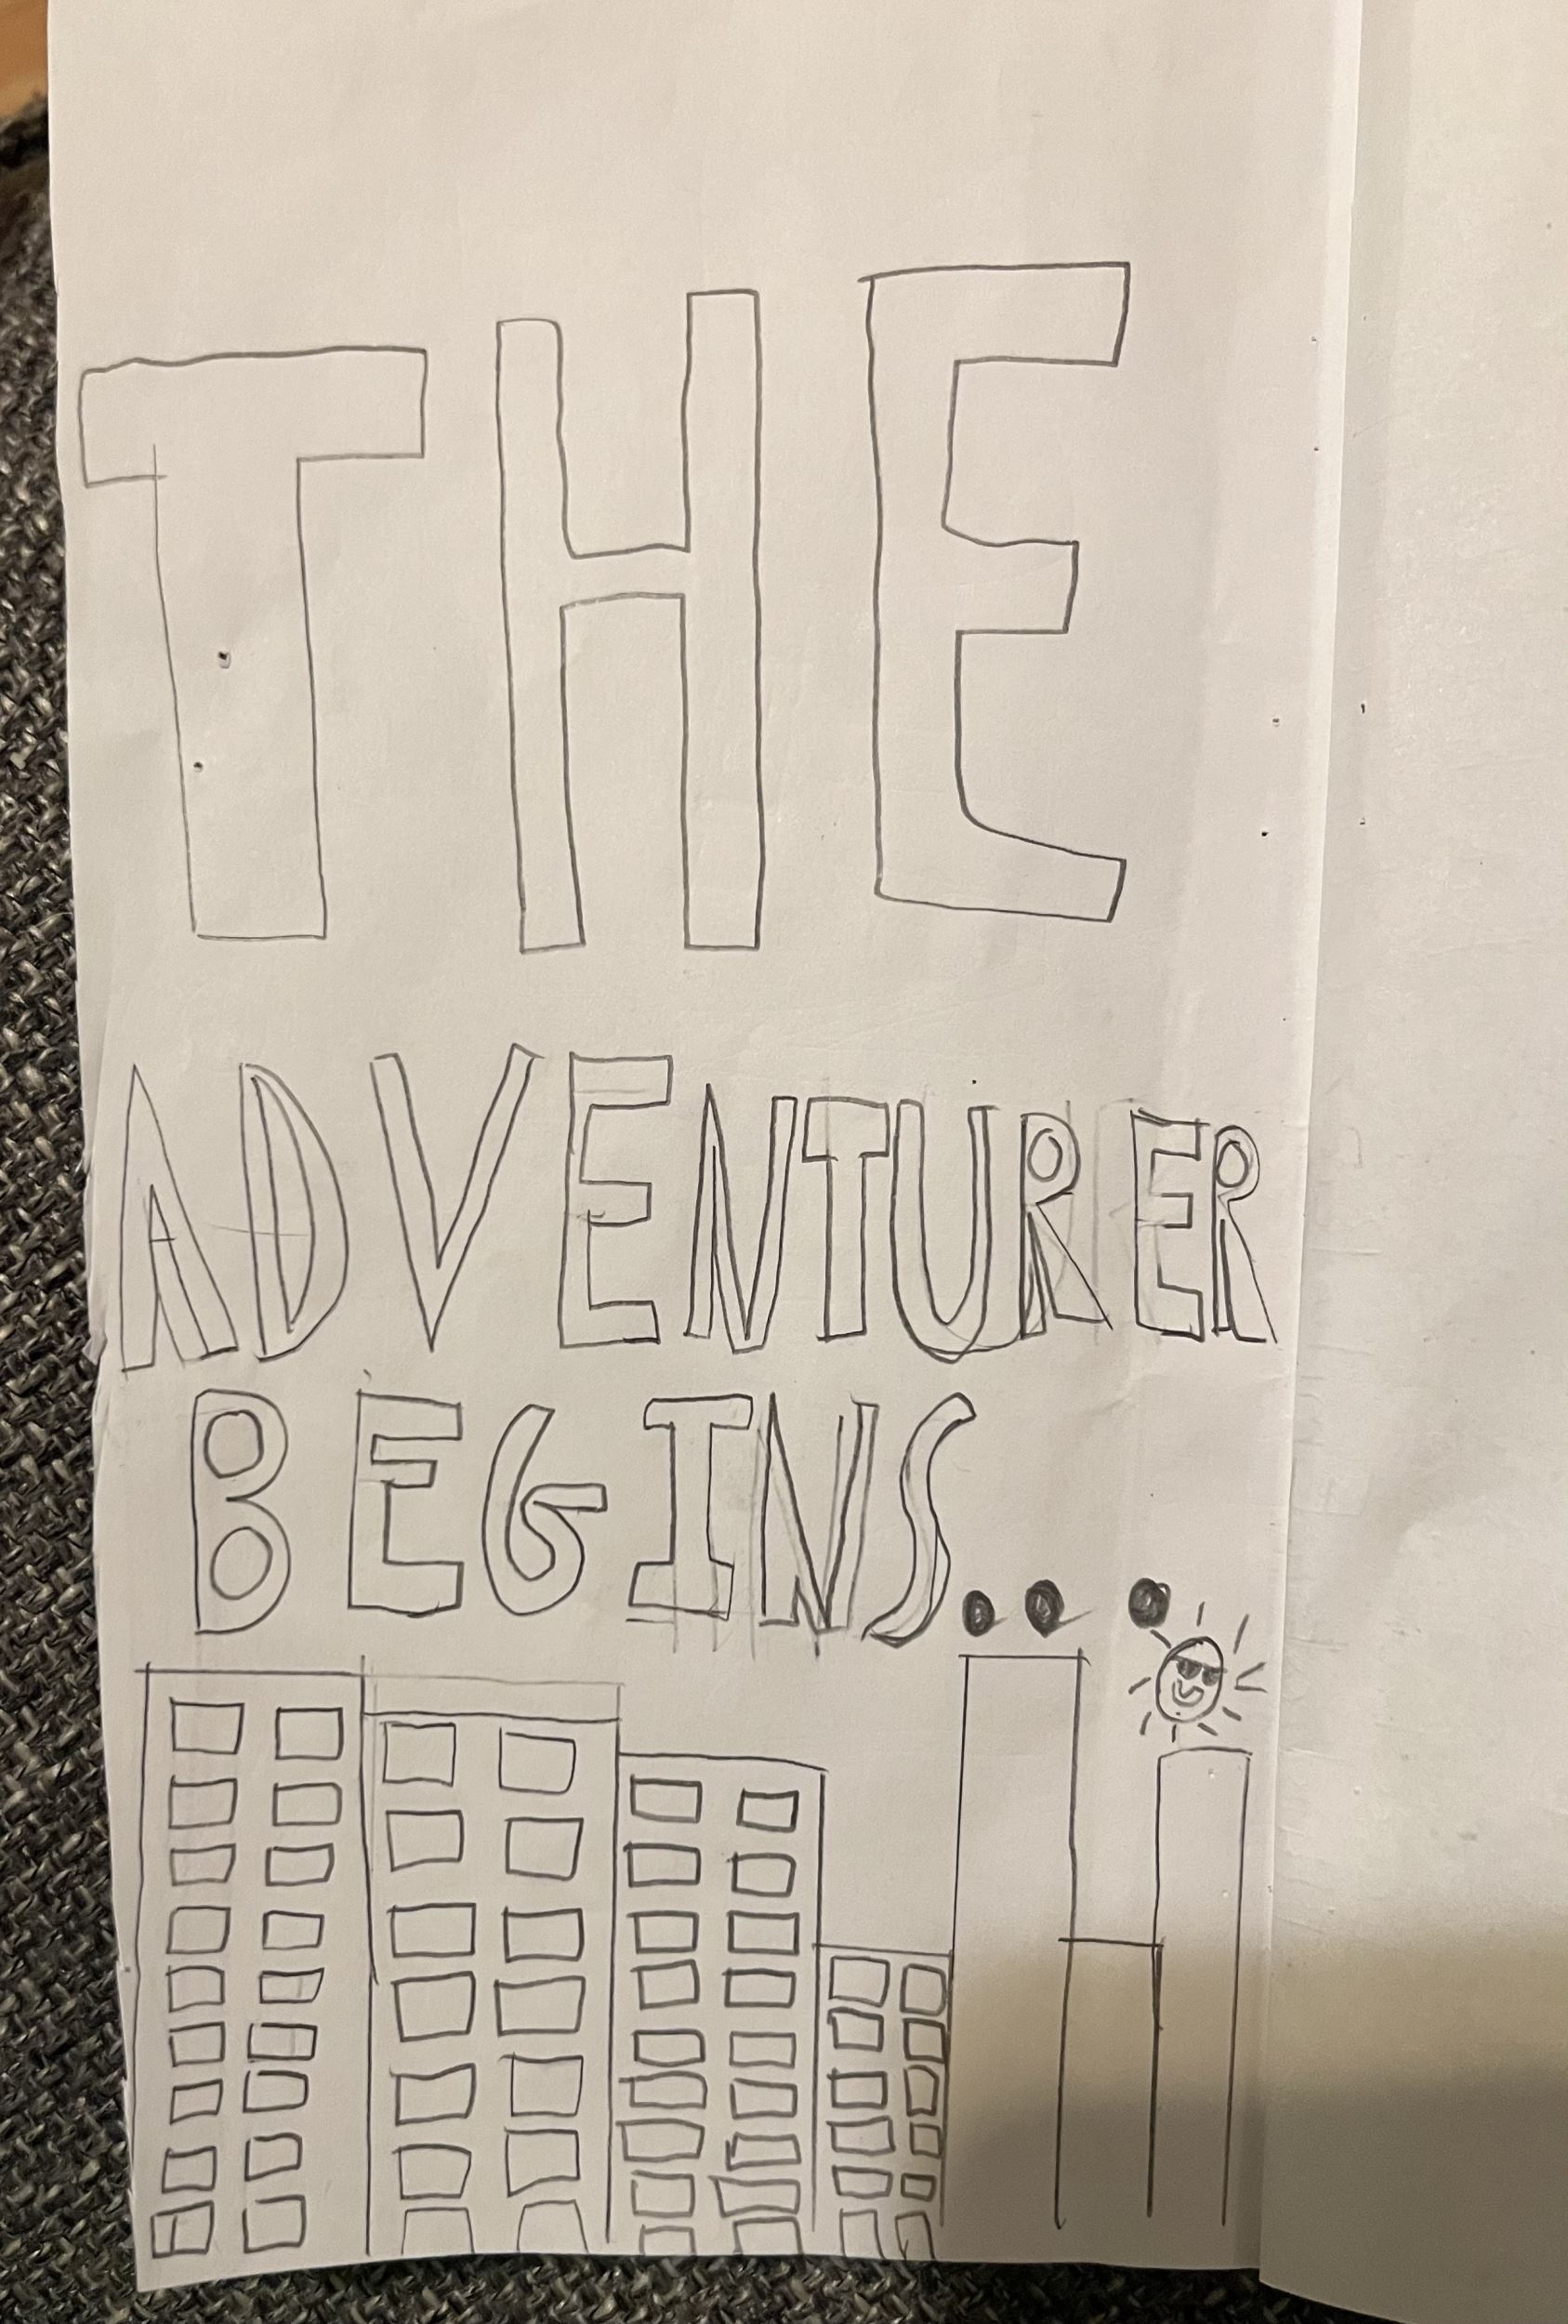 THE
ADVENTURER
BEGINS...